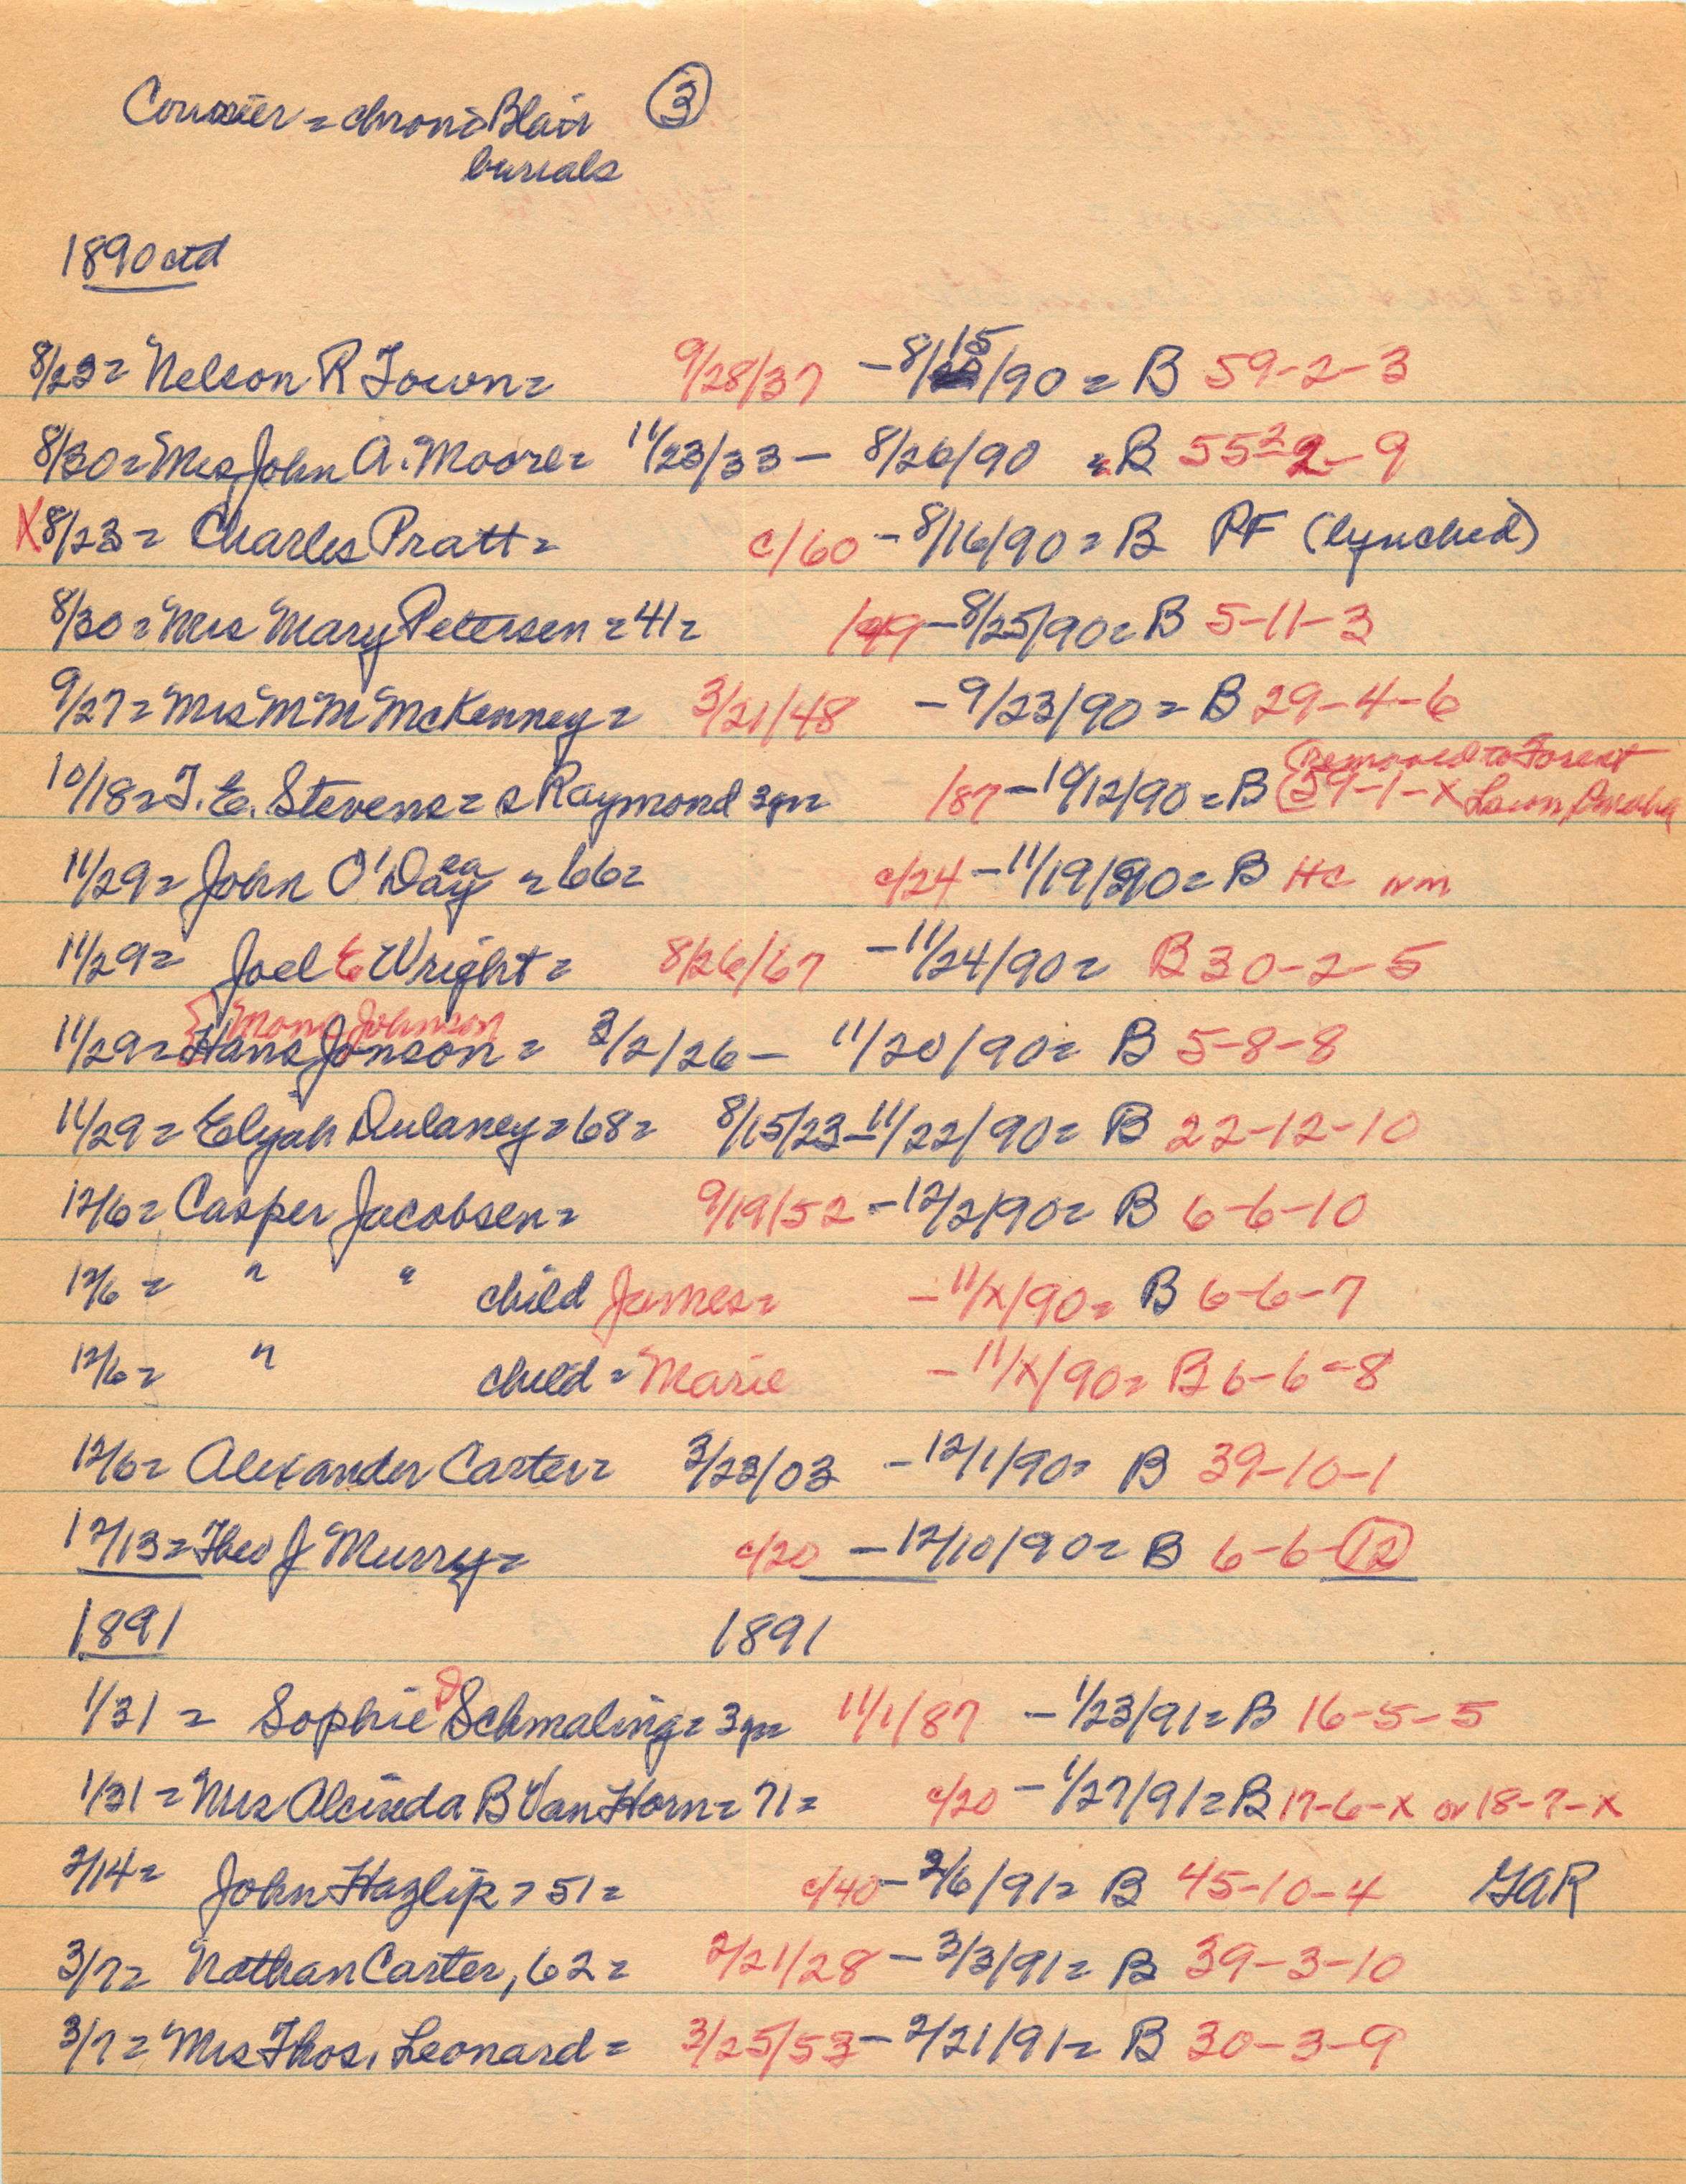 Courier = chron = Blair ③
burials
1890 ctd
8/23 = Nelson R Town = 9/28/37 - 8/15/90 = B 59-2-3
8/30 = Mrs John A. Moore = 11/23/33 - 8/26/90 = B 55-2-9
X 8/23 = Charles Pratt = c/60 - 8/16/90 = B PF (lynched)
8/30 = Mrs Mary Petersen = 41 = /49 - 8/25/90 = B 5-11-3
9/27 = Mrs M M McKenney = 3/21/48 - 9/23/90 = B 29-4-6
(removed to Forest
10/18 = T. E. Stevens = s Raymond 3yr = /87 - 10/12/90 = B (59-1-X Lawn, Omaha
11/29 = John O'Day = 66 = c/24 - 11/19/90 = B HC nm
11/29 = Joel E Wright = 8/26/67 - 11/24/90 = B 30-2-5
{Mons Johnson
11/29 = Hans Jonson = 3/2/26 - 11/20/90 = B 5-8-8
11/29 = Elijah Dulaney = 68 = 8/15/23 - 11/22/90 = B 22-12-10
12/6 = Casper Jacobsen = 9/19/52 - 12/2/90 = B 6-6-10
12/6 = " " child James = - 11/X/90 = B 6-6-7
12/6 = " child = Marie - 11/X/90 = B 6-6-8
12/6 = Alexander Carter = 3/23/03 - 12/1/90 = B 39-10-1
12/13 = Theo J Murry = c/20 - 12/10/90 = B 6-6-⑫
1891 1891
1/31 = Sophie D Schmaling = 3yr = 11/1/87 - 1/23/91 = B 16-5-5
1/31 = Mrs Alcinda B Van Horn = 71 = c/20 - 1/27/91 = B 17-6-X or 18-7-X
2/14 = John Hazlip = 51 = c/40 - 2/6/91 = B 45-10-4 GAR
3/7 = Nathan Carter, 62 = 2/21/28 - 3/3/91 = B 39-3-10
3/7 = Mrs Thos. Leonard = 3/25/53 - 2/21/91 = B 30-3-9